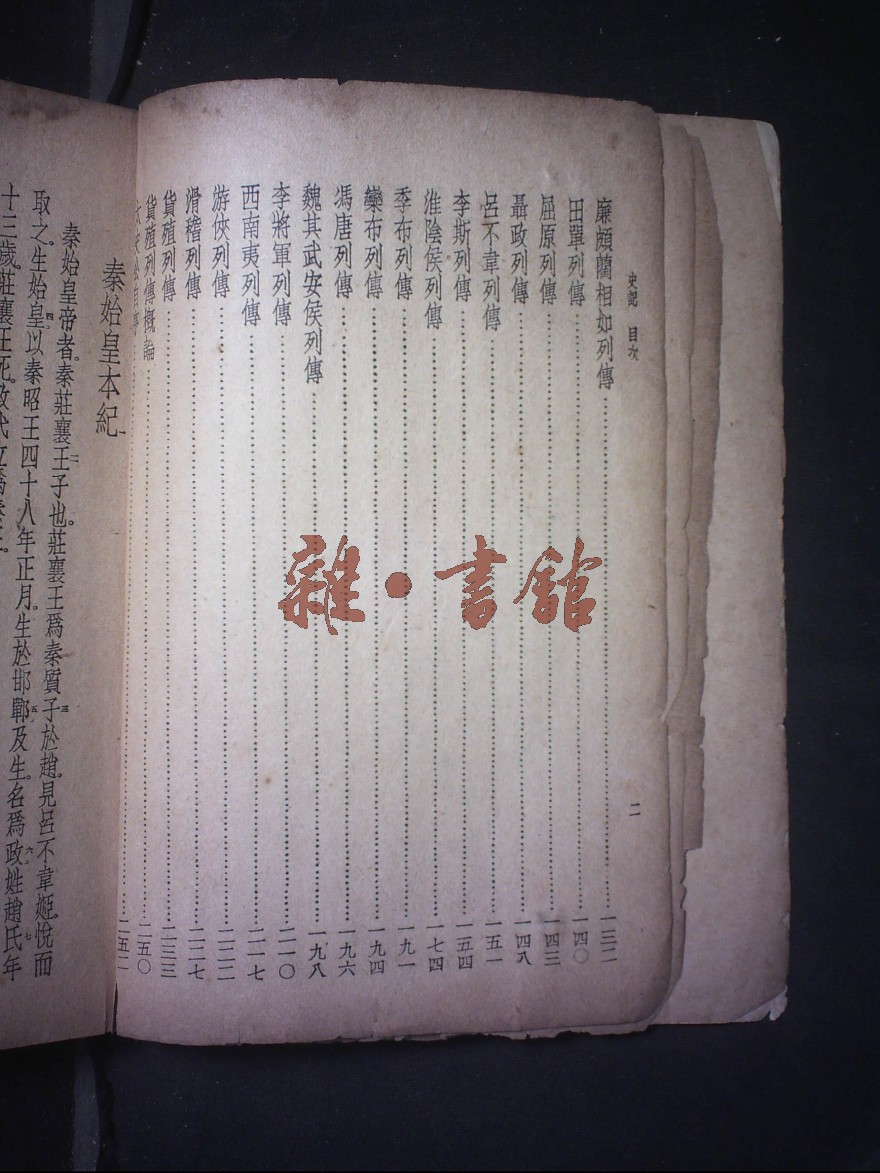 史記 目次
二
廉頗藺相如列傳……一三二
田單列傳……一四〇
屈原列傳……一四三
聶政列傳……一四八
呂不韋列傳……一五一
李斯列傳……一五四
淮陰侯列傳……一七四
季布列傳……一九一
欒布列傳……一九四
馮唐列傳……一九六
魏其武安侯列傳……一九八
李將軍列傳……二一〇
西南夷列傳……二一七
游俠列傳……二二二
滑稽列傳……二二七
貨殖列傳……二三三
貨殖列傳概論……二五〇
秦始皇本紀
秦始皇帝者。秦莊襄王二子也。莊襄王爲秦質子三於趙。見呂不韋姬。悅而
取之。生始皇四。以秦昭王四十八年正月。生於邯鄲五。及生。名爲政六。姓趙氏七。年
十三歲。莊襄王死。政代立爲秦王。
雜·書館